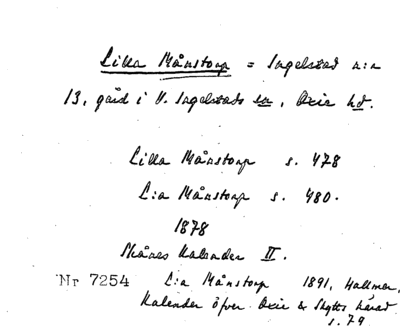 Lilla Månstorp = Ingelstad n:a
13, gård i V. Ingelstads sn, Oxie hd.
Lilla Månstorp s. 478
L:a Månstorp s. 480.
1878
Skånes Kalender II.
Nr 7254 L:a Månstorp 1891, Hallmer,
Kalender öfver Oxie & Skytts härad
s. 79